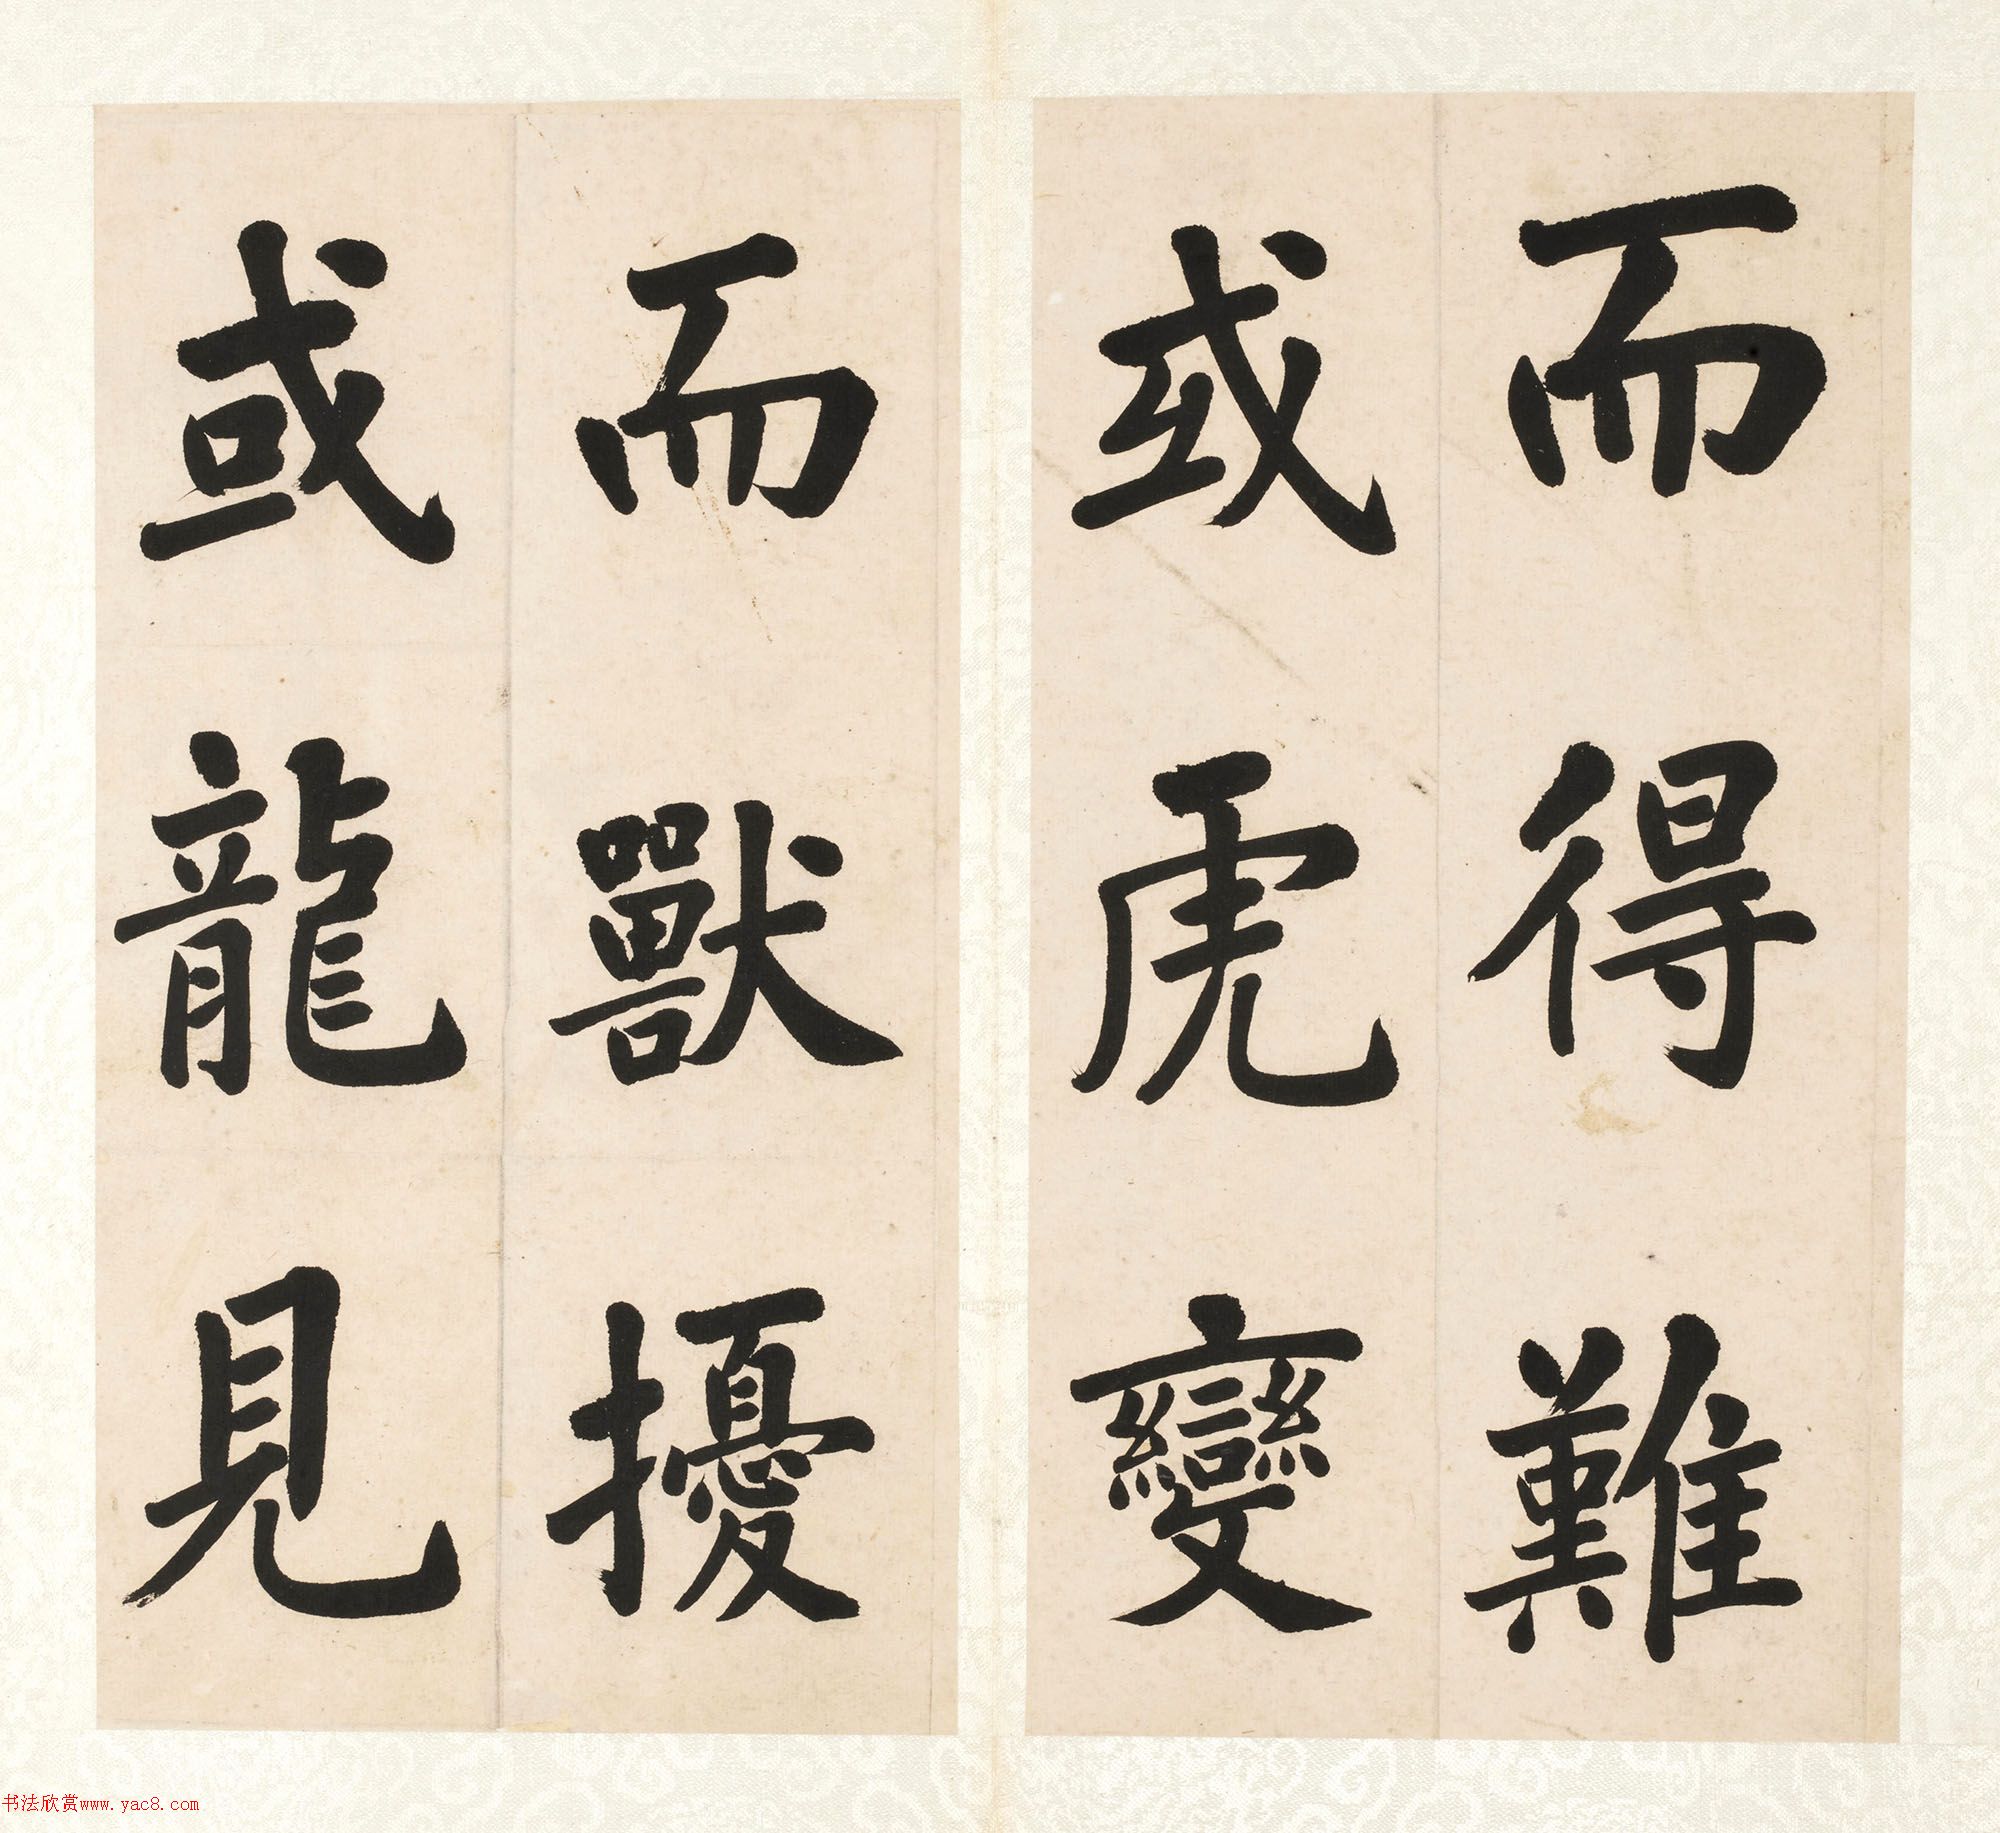 而得難
或虎變
而獸擾
或龍見
书法欣赏www.yac8.com